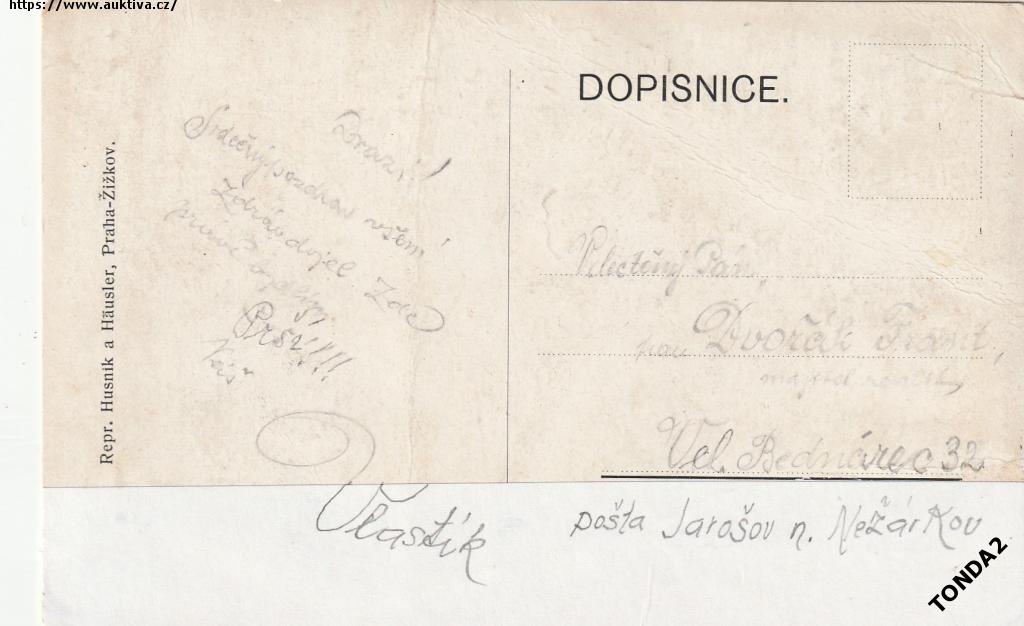 https://www.auktiva.cz/
DOPISNICE.
Repr. Husnik a Häusler, Praha-Žižkov.
Drazí!
Srdečný pozdrav všem!
Zdráv dojel Zde
právě
Prší!!!!
Váš
Vlastík
Velectěný Pan
pan Dvořák Frant,
majitel
Vel. Bednárec 32
pošta Jarošov n. Nežárkou
TONDA2